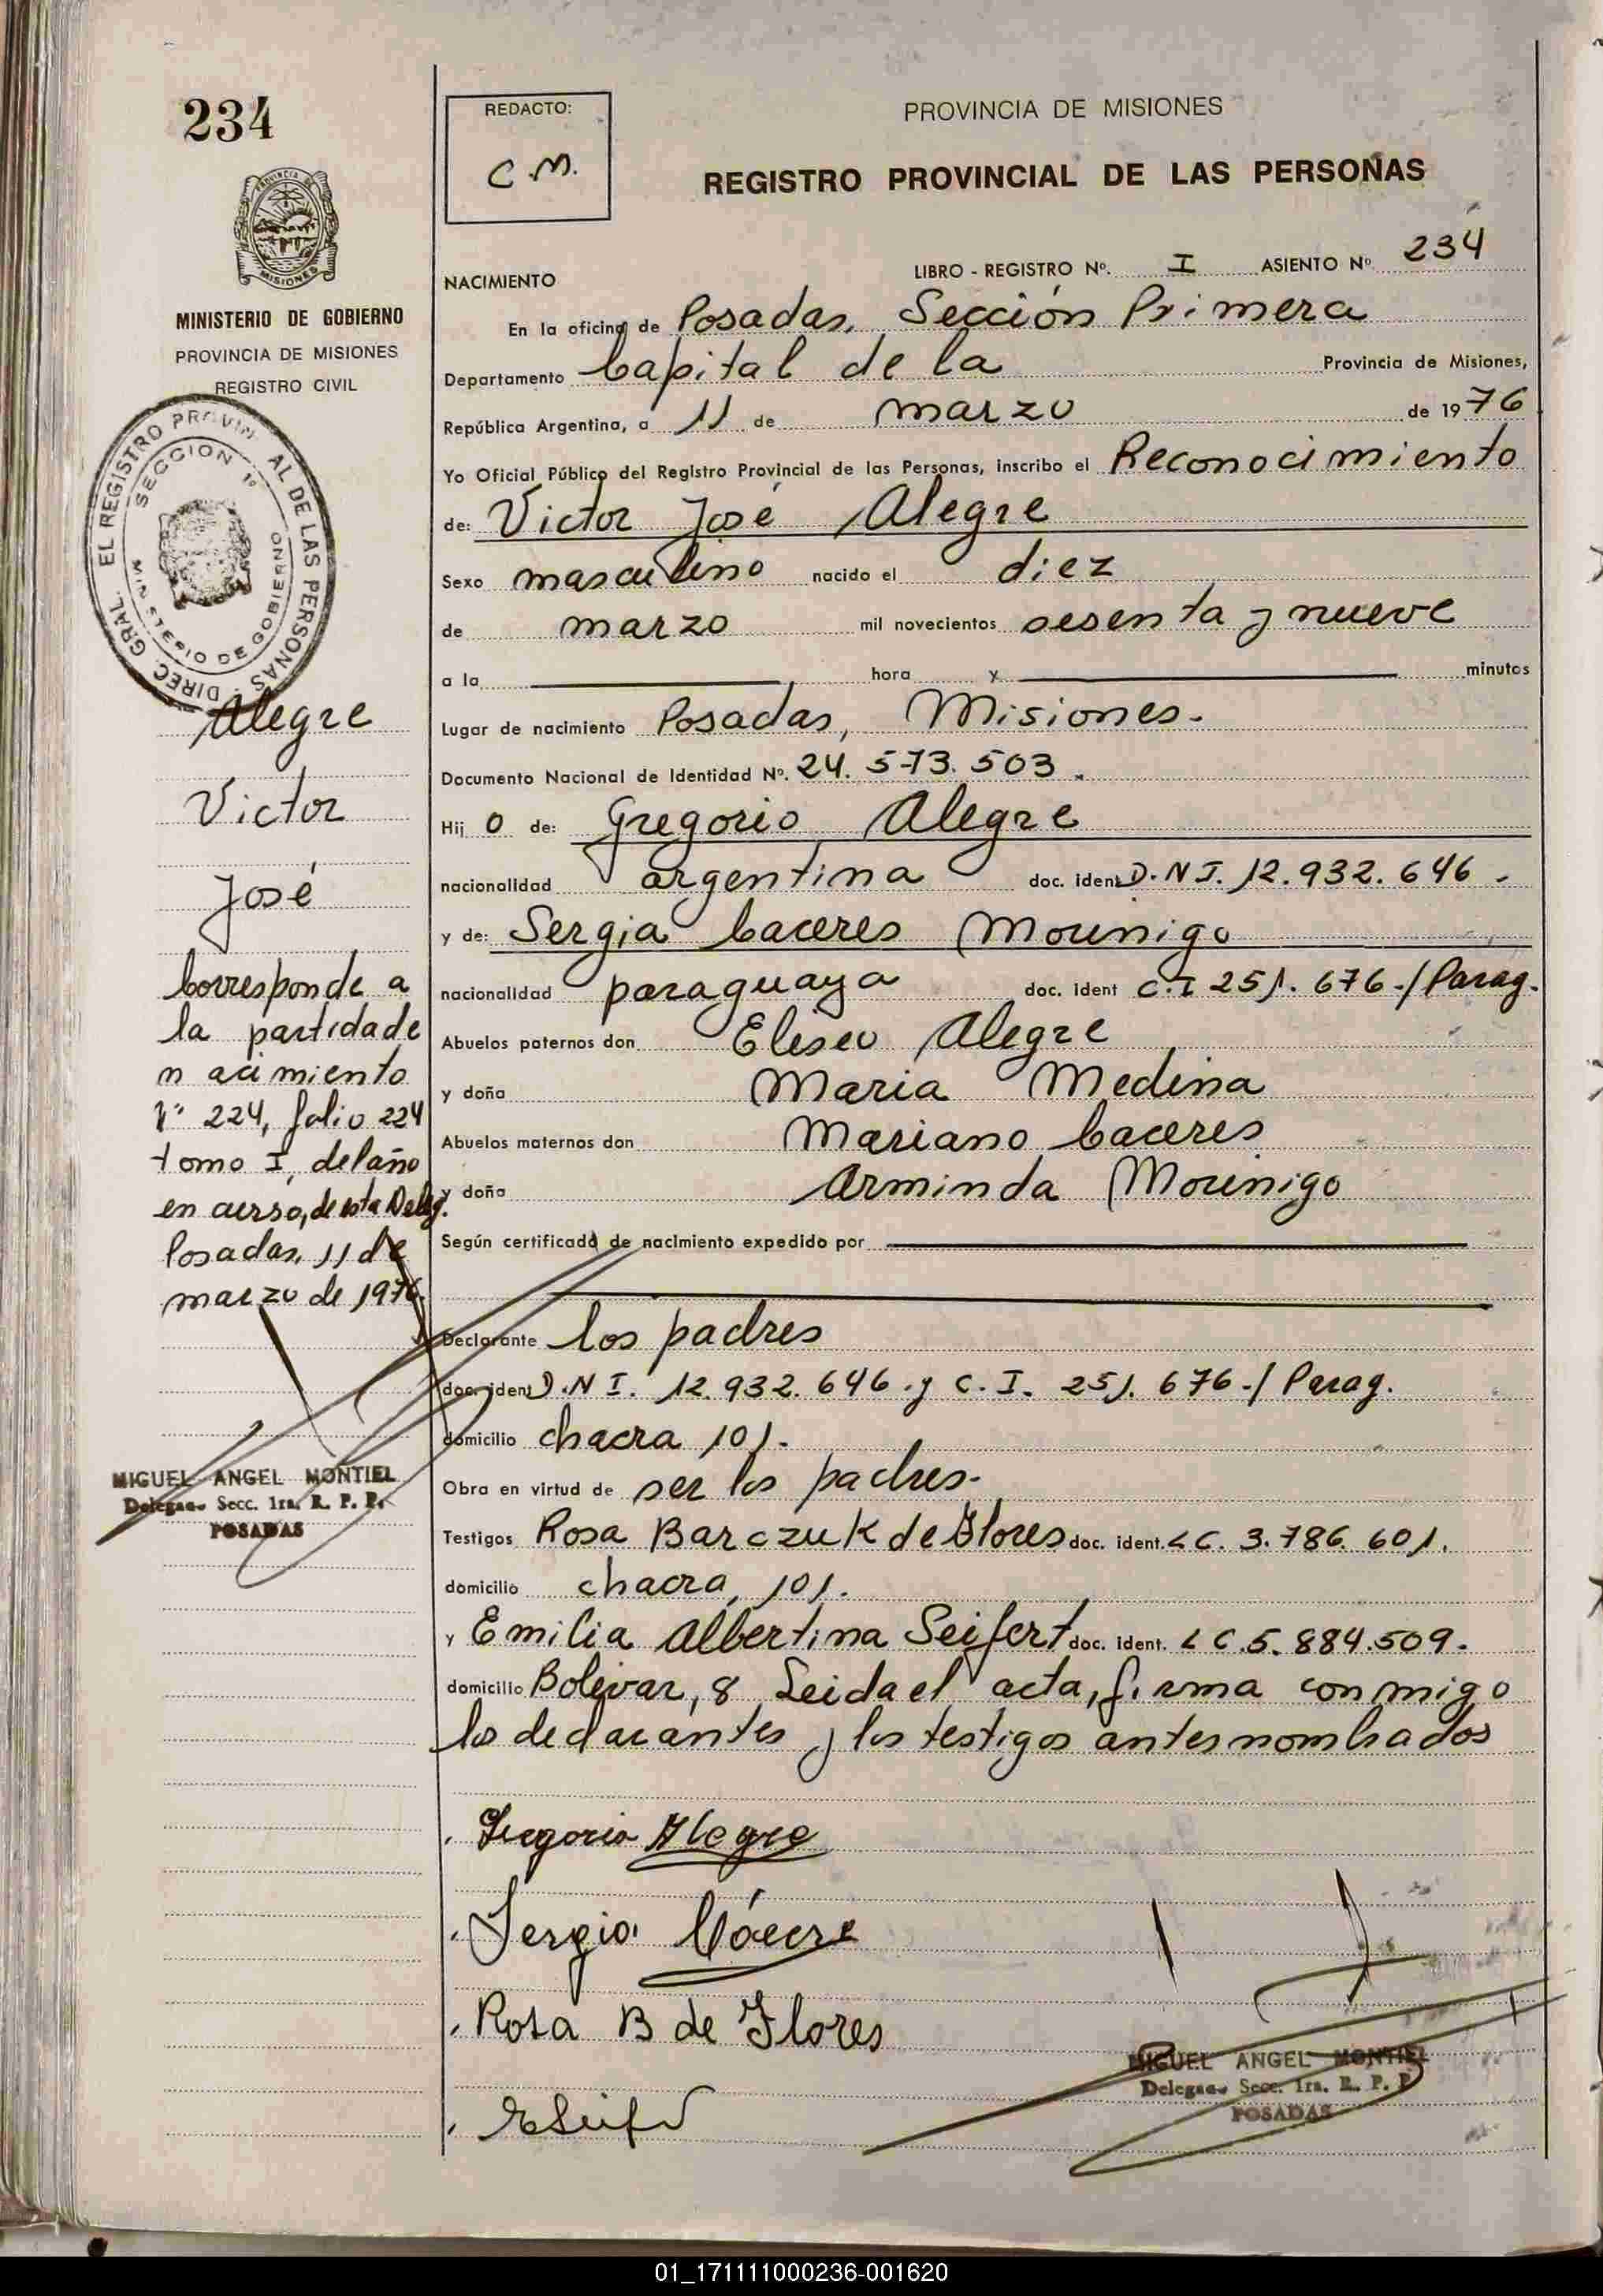 234
PROVINCIA DE MISIONES
MINISTERIO DE GOBIERNO
PROVINCIA DE MISIONES
REGISTRO CIVIL
DIREC. GRAL. EL REGISTRO PROVIN AL DE LAS PERSONAS
SECCION 1º
MINISTERIO DE GOBIERNO
Alegre
Victor
José
Corresponde a
la partida de
nacimiento
Nº 224, folio 224
tomo I, del año
en curso, de esta Deleg.
Posadas, 11 de
marzo de 1976.
MIGUEL ANGEL MONTIEL
Delegado Secc. 1ra. R. P. P.
POSADAS
REDACTO:
C.M.
PROVINCIA DE MISIONES
REGISTRO PROVINCIAL DE LAS PERSONAS
NACIMIENTO LIBRO - REGISTRO Nº. I ASIENTO Nº 234
En la oficina de Posadas, Sección Primera
Departamento Capital de la Provincia de Misiones,
República Argentina, a 11 de marzo de 1976
Yo Oficial Público del Registro Provincial de las Personas, inscribo el Reconocimiento
de: Victor José Alegre
Sexo masculino nacido el diez
de marzo mil novecientos sesenta y nueve
a la hora y minutos
Lugar de nacimiento Posadas, Misiones.
Documento Nacional de Identidad Nº. 24.573.503.
Hij o de: Gregorio Alegre
nacionalidad argentina doc. ident D.N I. 12.932.646.
y de: Sergia Caceres Mourigo
nacionalidad paraguaya doc. ident C.I 251.676-/Parag.
Abuelos paternos don Eliseo Alegre
y doña Maria Medina
Abuelos maternos don Mariano Caceres
y doña Arminda Mourigo
Según certificado de nacimiento expedido por
Declarante los padres
doc. ident D.N I. 12.932.646.y C.I. 251.676-/Parag.
domicilio chacra 101.
Obra en virtud de ser los padres.
Testigos Rosa Barczuk de Flores doc. ident. L C. 3.786.601.
domicilio chacra, 101.
y Emilia Albertina Seifert doc. ident. L C. 5.884.509.
domicilio Bolivar, 8 Leida el acta, firma conmigo
los declarantes y los testigos antes nombrados
Gregorio Alegre
Sergia Cácere
Rosa B de Flores
MIGUEL ANGEL MONTIEL
Delegado Secc. 1ra. R. P. P
POSADAS
01_171111000236-001620